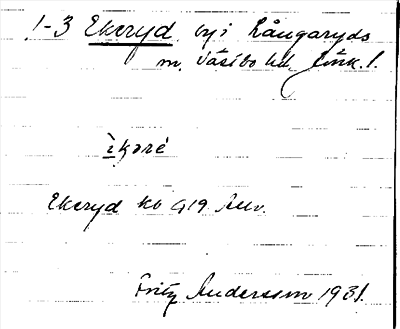 1-3 Ekeryd by i Långaryds
sn. Västbo hd. Jönk. l.
ìkəré
Ekeryd kb G19 Auv.
Fritz Andersson 1931.